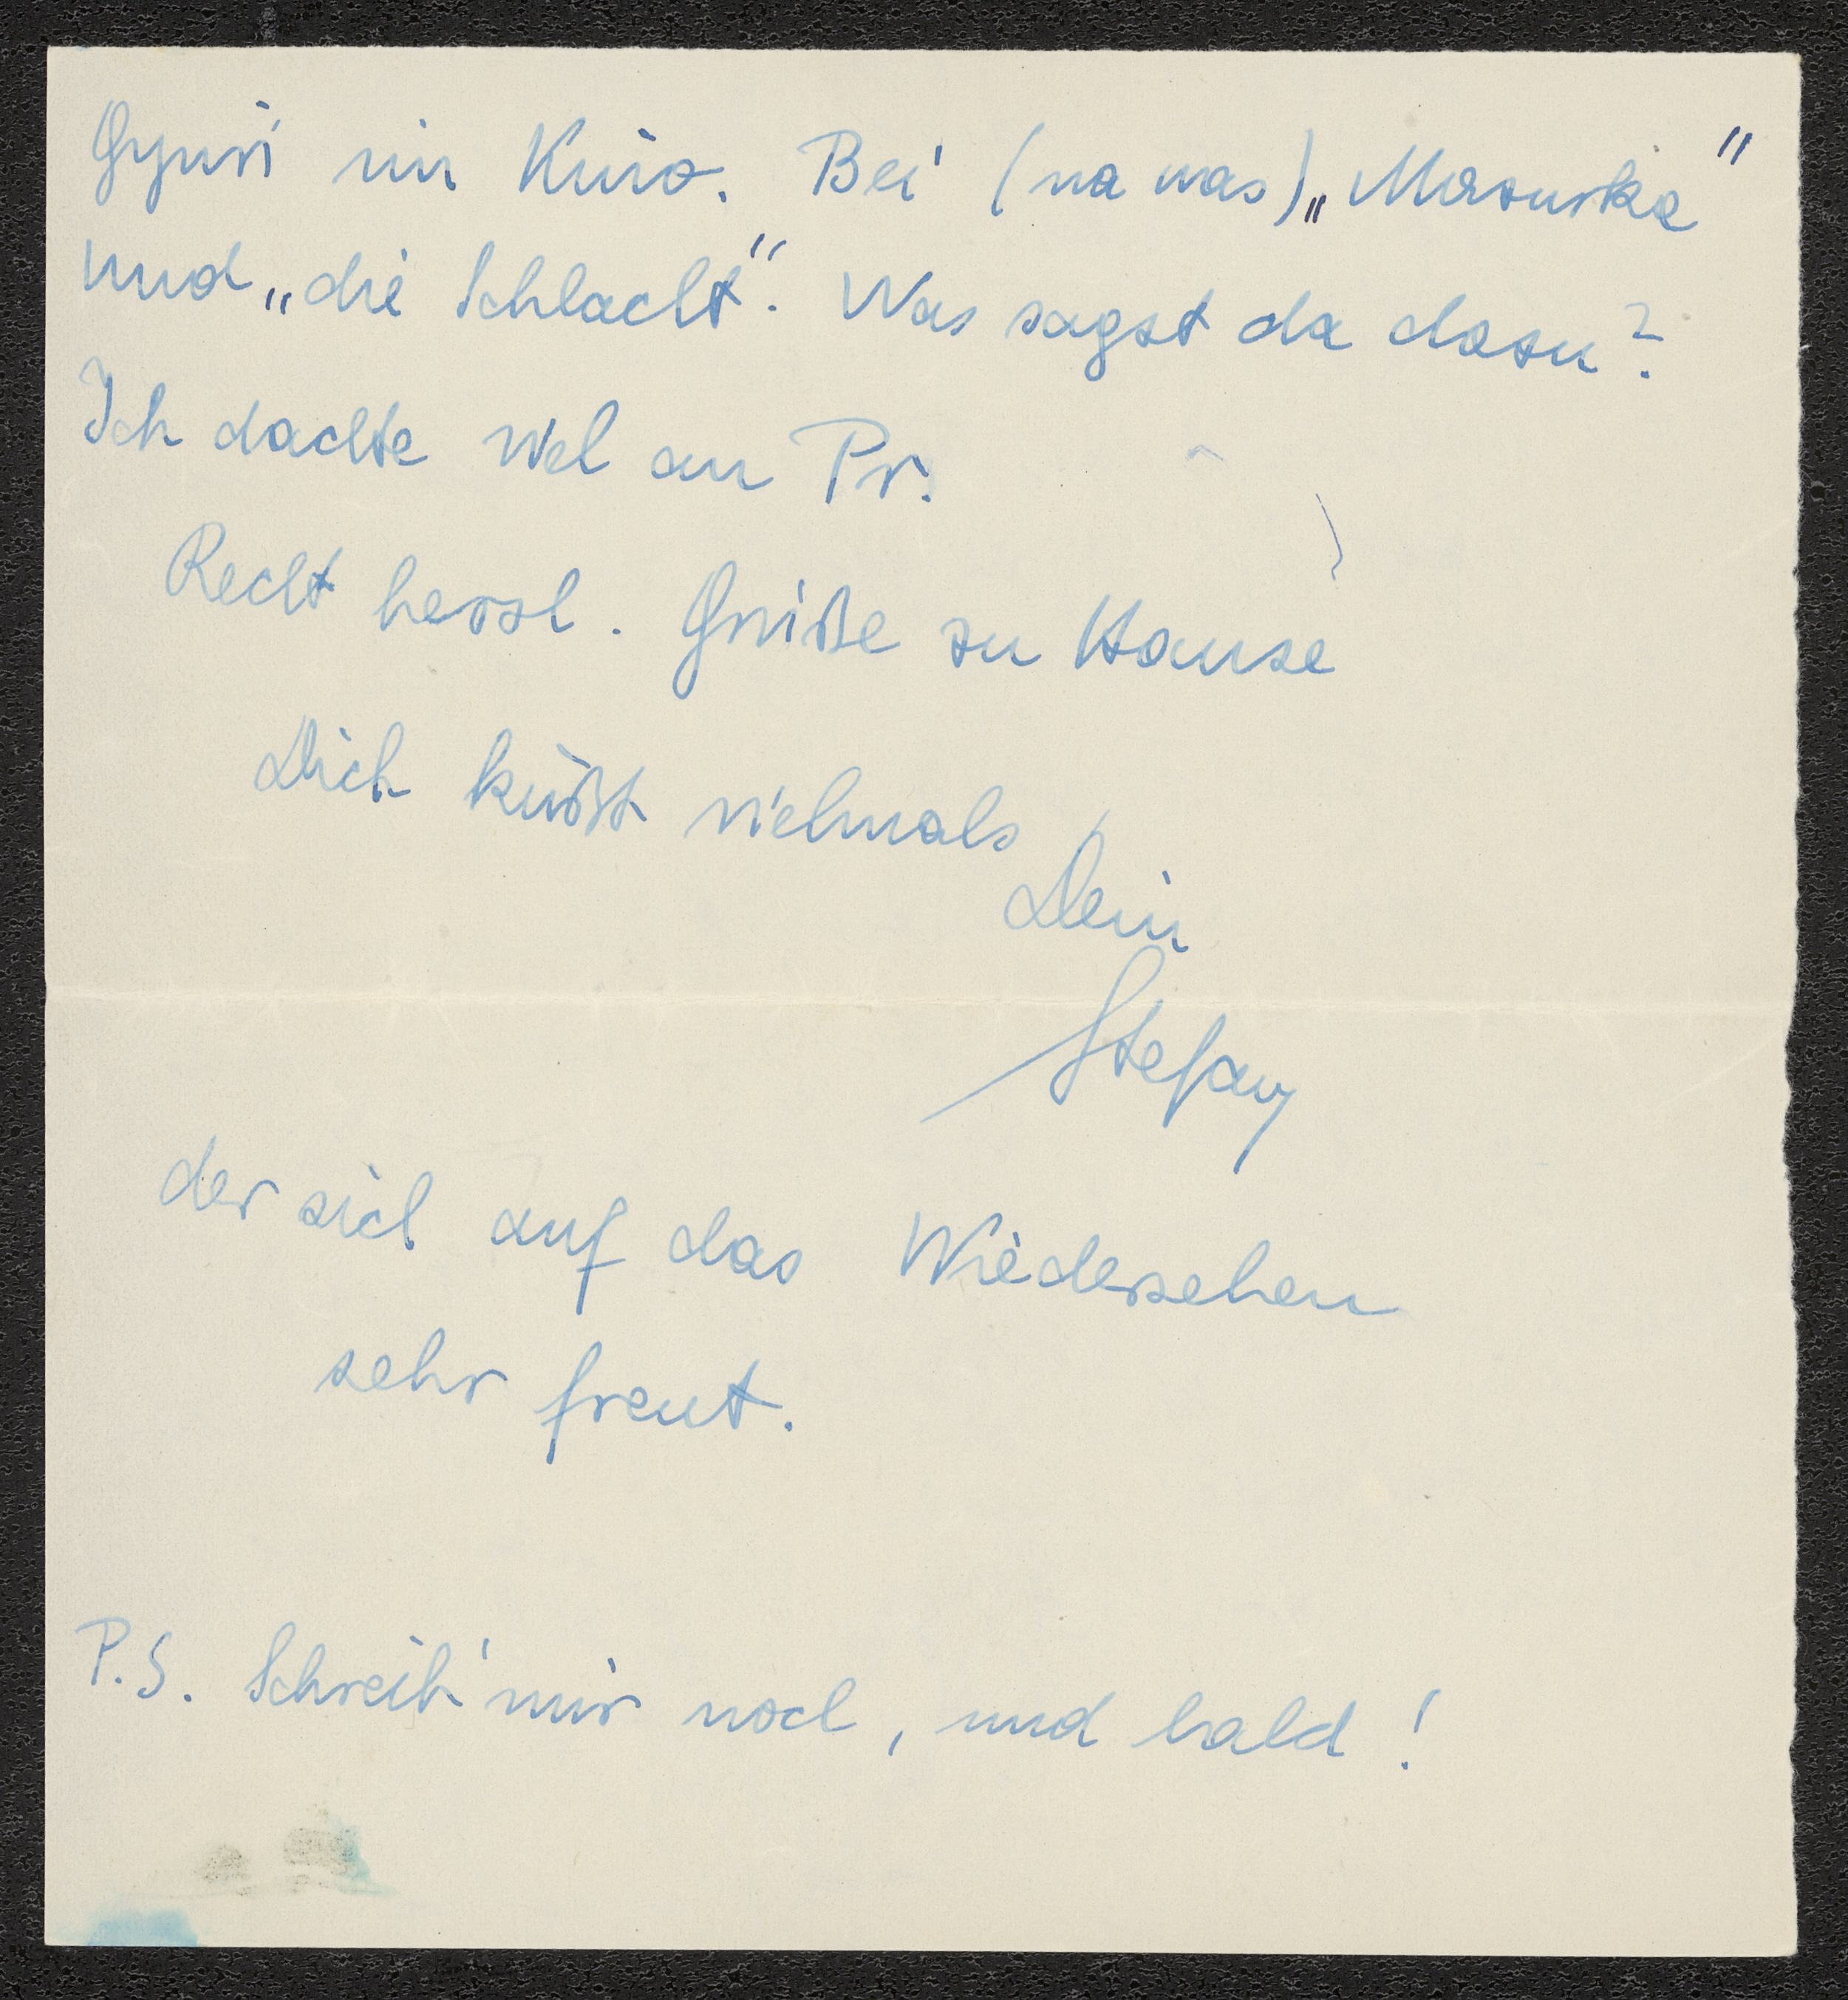 Gyuri im Kino. Bei (na was) „Mazurka"
und „die Schlacht". Was sagst da dazu?
Ich dachte viel an Pr.
Recht herzl. Grüße zu Hause
Dich küßt vielmals
Dein
Stefan
der sich auf das Wiedersehen
sehr freut.
P.S. Schreib' mir noch, und bald!